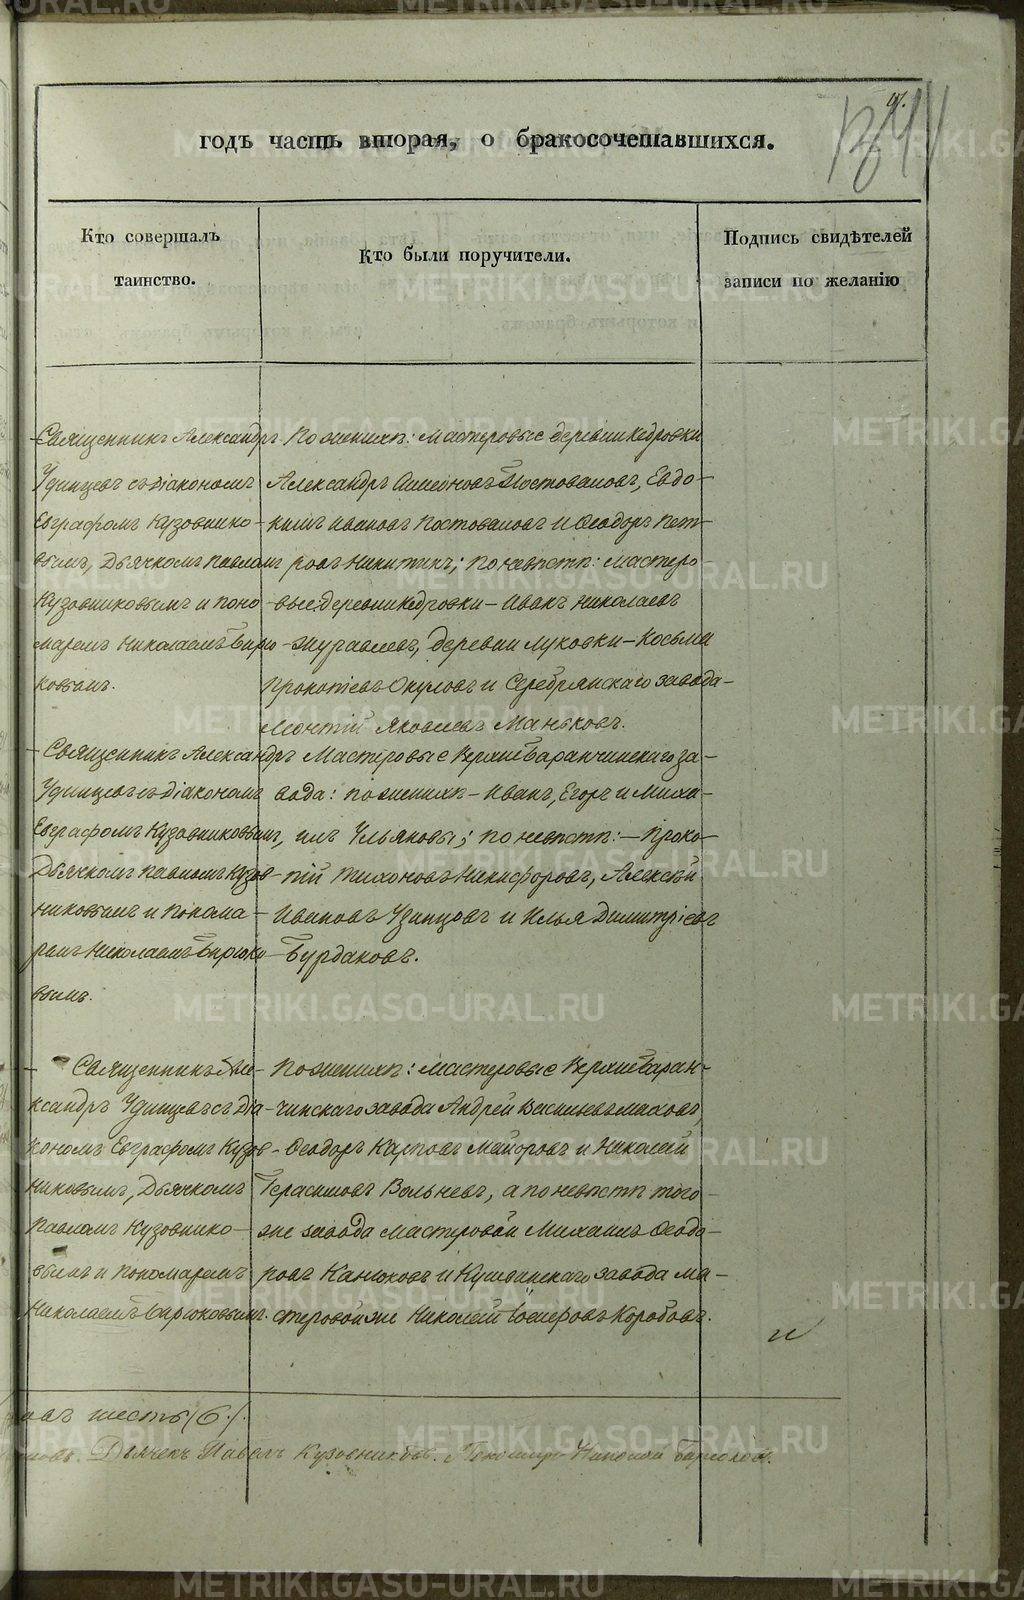 годъ часть вторая, о бракосочетавшихся.
Кто совершалъ
таинство.
Кто были поручители.
Подпись свидѣтелей
записи по желанію
Священникъ Александръ
Удинцевъ съ діакономъ
Евграфомъ Кузовнико-
вымъ, Дьячкомъ Павломъ
Кузовниковымъ и поно
маремъ Николаемъ Бирю
ковымъ.
По женихѣ: Мастеровые деревни Кедровки
Александръ Постоваловъ, Евдо-
кимъ Ивановъ Постоваловъ и Ѳеодоръ Пет-
ровъ Никитинъ; по невѣстѣ: Мастеро-
вые: деревни Кедровки – Иванъ Николаевъ
Журавлевъ, деревни Луковки – Косьма
Прокопіевъ Окуловъ и Серебрянскаго завода –
Леонтій Яковлевъ Маньковъ.
Священникъ Александръ
Удинцевъ съ діакономъ
Евграфомъ Кузовниковымъ,
Дьячкомъ Павломъ Кузов-
никовымъ и Понома-
ремъ Николаемъ Бирюко-
вымъ.
Мастеровые Верхнебаранчинскаго за-
вода: по женихѣ – Иванъ, Егоръ и Миха-
илъ Ульяновы; по невѣстѣ: – Проко-
пій Тихоновъ Никифоровъ, Алексѣй
Ивановъ Удинцовъ и Илья Димитріевъ
Бурдаковъ.
Священникъ Але-
ксандръ Удинцевъ съ Діа-
кономъ Евграфомъ Кузов-
никовымъ, Дьячкомъ
Павломъ Кузовнико-
вымъ и Пономаремъ
Николаемъ Бирюковымъ.
По женихѣ: мастеровые Верхнебаран-
чинскаго завода Андрей Васильевъ Маховъ,
Ѳеодоръ Карповъ Майоровъ и Николай
Герасимовъ Вольневъ, а по невѣстѣ того-
же завода мастеровой Михаилъ Ѳеодо-
ровъ Канюковъ и Кушвинскаго завода ма-
стеровой же Николай Коробовъ.
шесть (6.).
Дьячекъ Павелъ Кузовниковъ. Пономарь Николай Бирюковъ.
METRIKI.GASO-URAL.RU